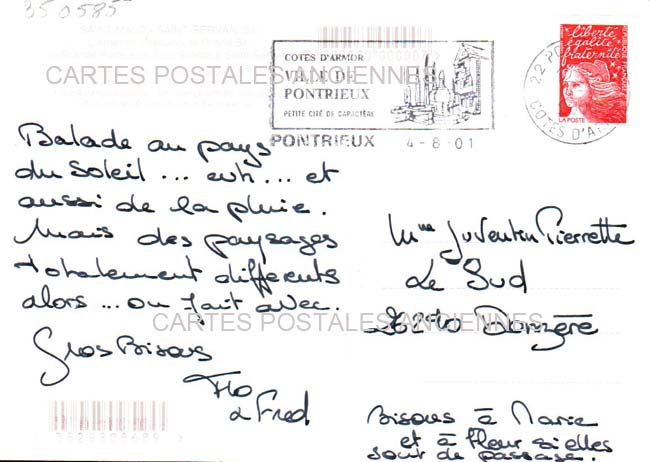 350585
CARTES POSTALES ANCIENNES
COTES D'ARMOR
VILLE DE
PONTRIEUX
PETITE CITÉ DE CARACTÈRE
PONTRIEUX 4-8-01
22 PO
COTES D'AR
liberté
égalité
fraternité
LA POSTE
Balade au pays
du Soleil ... euh ... et
aussi de la pluie.
Mais des paysages
totalement différents
alors ... on fait avec.
Gros Bisous
Flo
& Fred
Mme Juventin Pierrette
Le Sud
26290 Donzère
CARTES POSTALES ANCIENNES
Bisous à Marie
et à Fleur si elles
sont de passage.